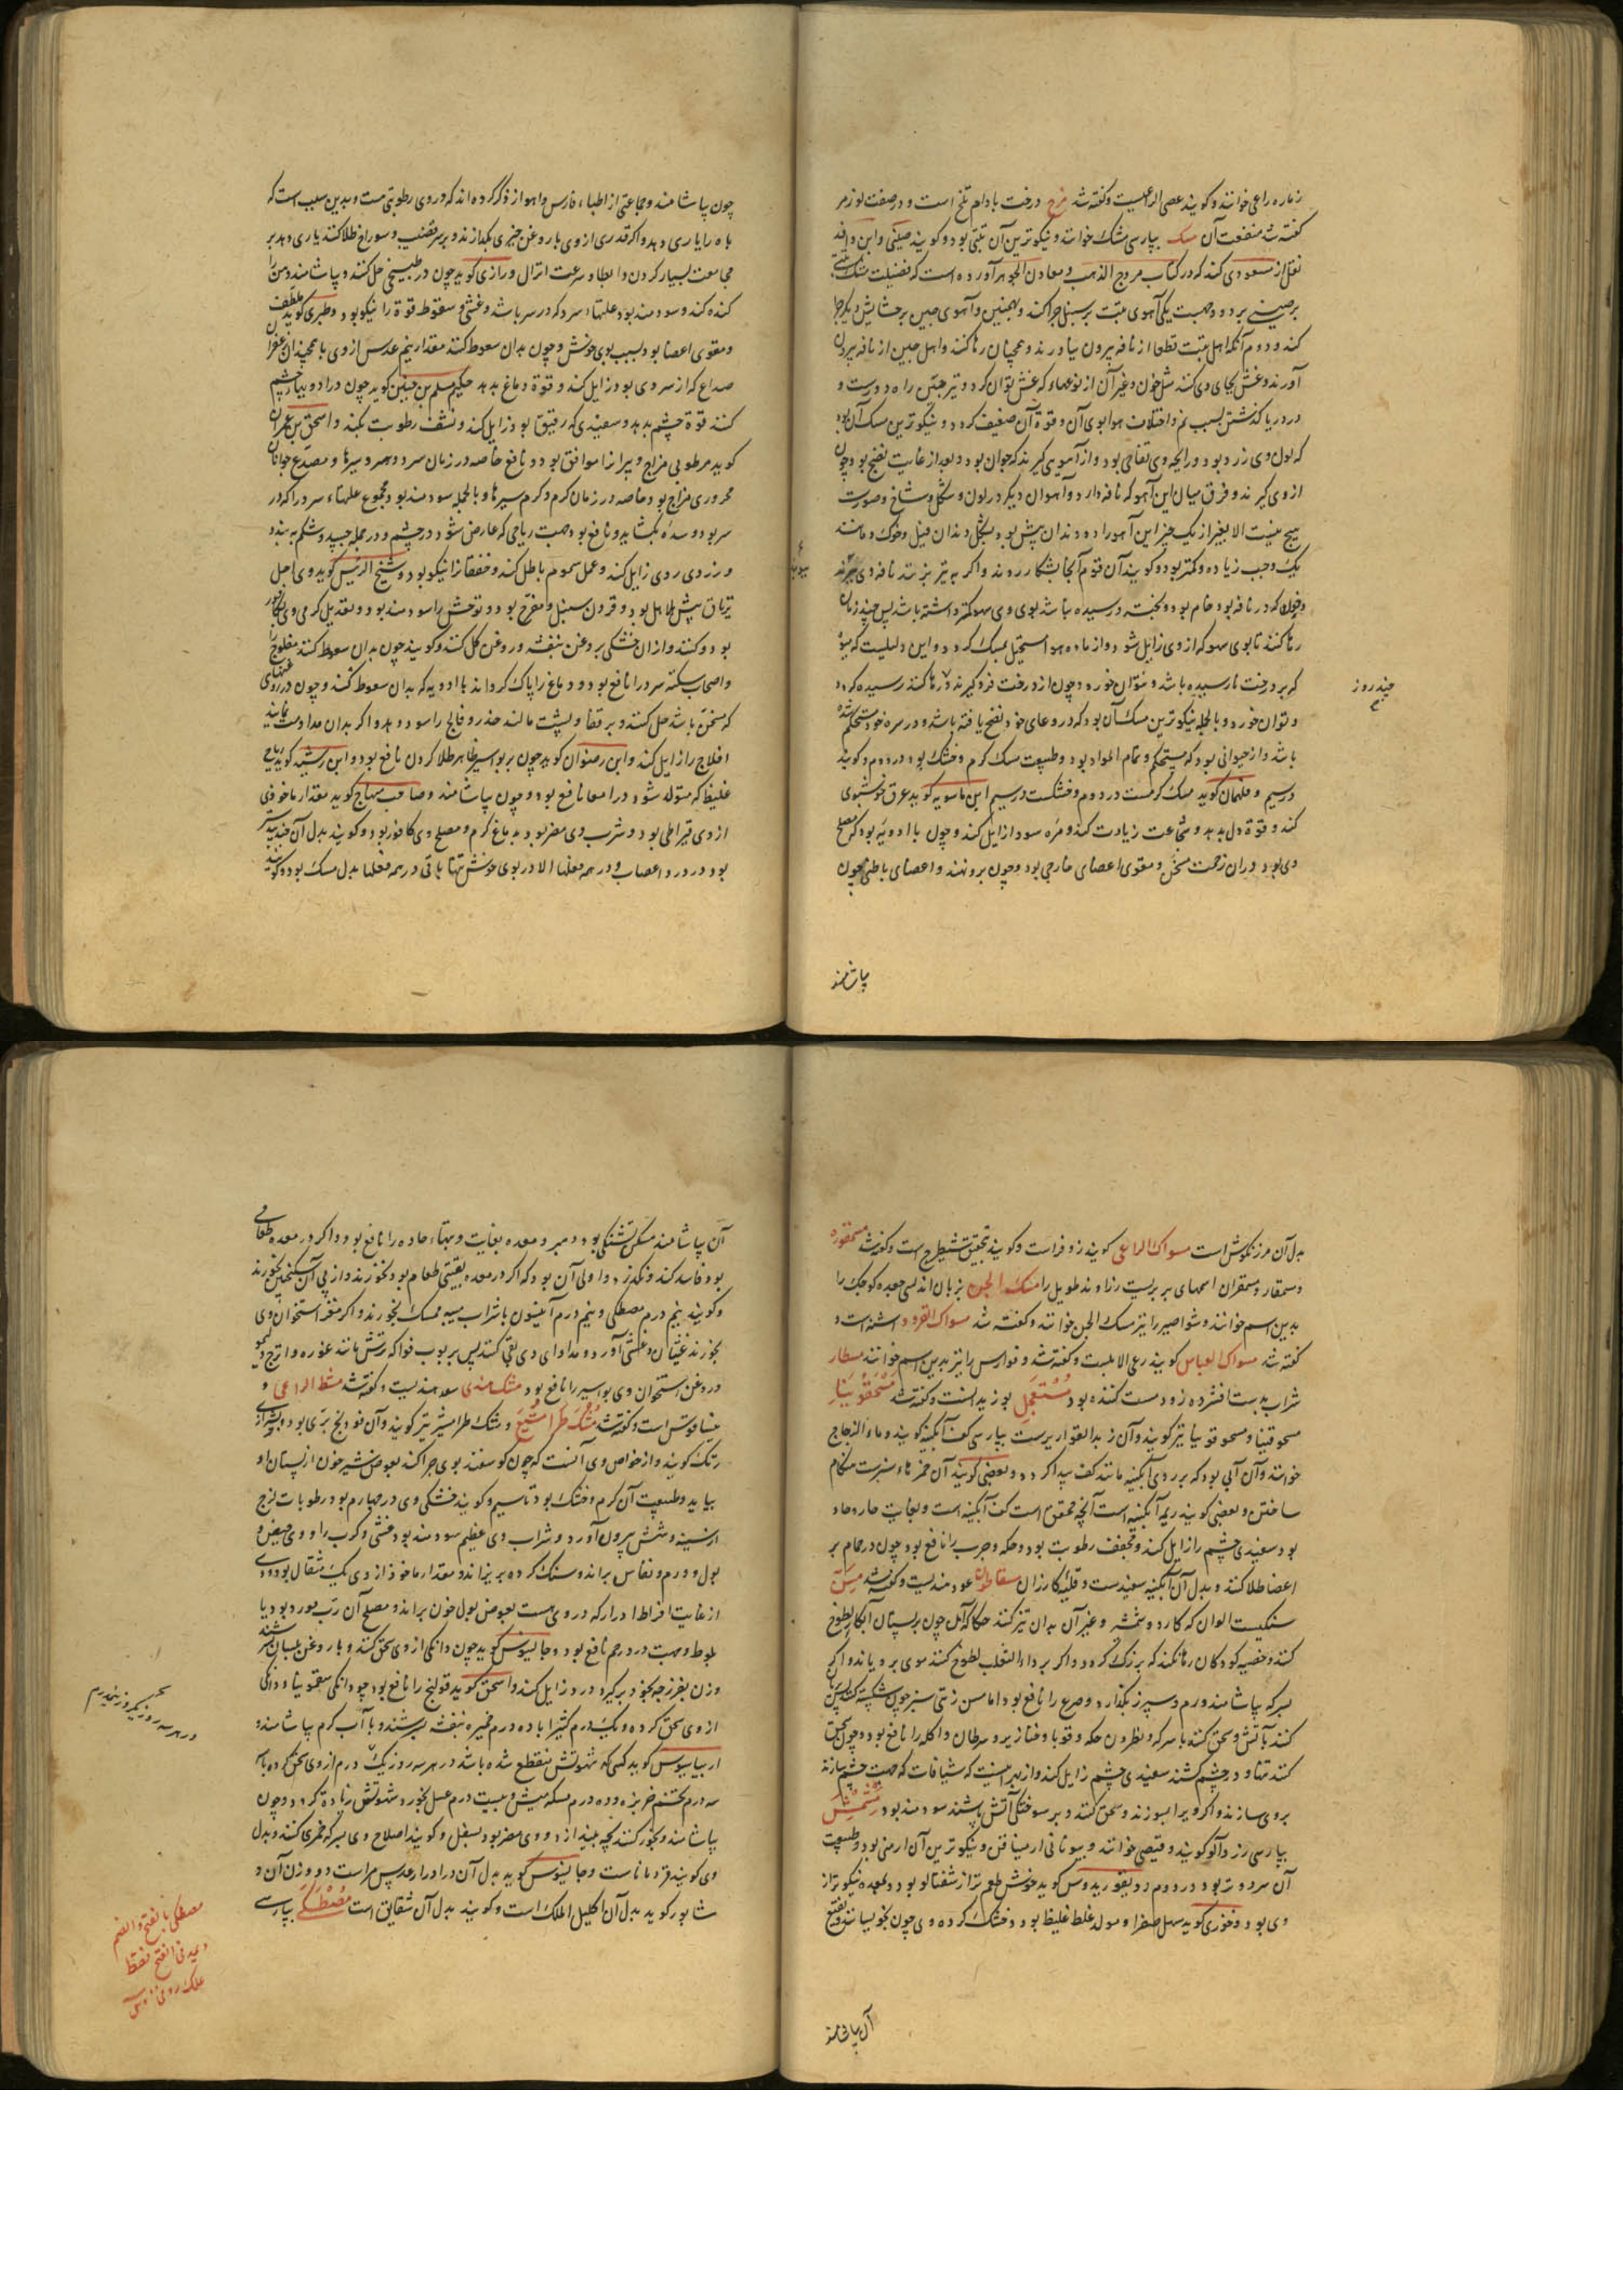 زماره راعی خوانند و گویند عصی الراعیست و گفته شد مزج درخت بادام تلخ است و در صفت لوز مر
گفته شد منفعت آن مسک بپارسی مشک خوانند و نیکوترین آن تبتی بود و گویند صینی و ابن وافد
نقل از مسعودی کند که در کتاب مروج الذهب و معادن الجوهر آورده است که فضیلت مشک تبتی
بر صینی بر دو وجهست یکی آهوی تبت بر سنبل چرا کند و بهمنین و آهوی چین بر حشایش دیگر چرا
کند و دوم آنکه اهل تبت قطعا از نافه بیرون نیاورند و همچنان رها کنند و اهل چین از نافه بیرون
آورند و غش بجای وی کنند مثل خون و غیر آن از نوعهاء که غش توان کرد و نیز چین راه دورست و
در دریا گذشتن بسبب نم و اختلاف هوا بوی آن و قوة آن ضعیف گردد و نیکوترین مسک آن بود
که لون وی زرد بود و رایحه وی تفاحی بود و از آهویی گیرند که جوان بود و بعد از غایت نضج بود و چون
از وی گیرند و فرق میان این آهو که نافه دارد و آهوان دیگر در لون و شکل و شاخ و صورت
هیچ نیست الا بغیر از یک چیز این آهو را دو دندان پیش بود بشکل دندان فیل و خوک و مانند
یک وجب زیاده و کمتر بود و گویند آن قوم آنجا بشکار روند و اگر به تیر بزنند نافه وی ببرند
و خون که در نافه بود خام بود و نپخته و رسیده نباشد بوی وی سهوکة داشته باشد پس چند زمان
رها کنند تا بوی سهوکه از وی زایل شود و از ماده هوا مستحیل بمسک گردد و این دلیلست که میوه
که بر درخت نارسیده باشد و نتوان خورد و چون از درخت فرو گیرند و رها کنند رسیده گردد
و توان خورد و بالجمله نیکوترین مسک آن بود که در وعای خود نضج یافته باشد و در سره خود مستحکم شده
باشد و از حیوانی بود که مستحکم و تمام المواد بود و طبیعت مسک گرم و خشک بود در دوم و گویند
در سیم و فلهمان گوید مسک گرمست در دوم و خشکست در سیم ابن ماسویه گوید عرق خوشبوی
کند و قوة دل بدهد و شجاعت زیادت کند و مره سودا زایل کند و چون با ادویه بود که مصلح
وی بود در آن زحمت مسخن و مقوی اعضای خارجی بود و چون برو نهند و اعضای باطنی چون
پاشامند
چند روز
چون پاشامند و جماعتی از اطباء فارس و اهواز ذکر کرده‌اند که در وی رطوبتی هست و بدین سبب است که
باه را یاری دهد و اگر قدری از وی با روغن خیری بگدازند و بر سر قضیب و سوراخ طلا کنند یاری دهد بر
مجامعت بسیار کردن و ابطا و سرعت انزال و رازی گوید چون در طبیخی حل کنند و پاشامند دهن را
گنده کند و سودمند بود علتهاء سرد که در سر باشد و غشی و سقوط قوة را نیکو بود و طبری گوید ملطف
و مقوی اعضا بود بسبب بوی خوش و چون بدان سعوط کنند مقدار نیم عدس از وی با همچندان زعفران
صداع که از سردی بود زایل کند و قوة دماغ بدهد حکیم مسلم بن حنین گوید چون در ادویه چشم
کنند قوة چشم بدهد و سفیدی که رقیق بود زایل کند و نشف رطوبت بکند و اسحق بن عمران
گوید مرطوبی مزاج و پیرانرا موافق بود و نافع خاصه در زمان سرد و سردسیرها و مصدع جوانان
محروری مزاج بود خاصه در زمان گرم و گرم سیرها و بالجمله سودمند بود مجموع علتهاء سرد را که در
سر بود و سده بگشاید و نافع بود جهت ریاحی که عارض شود در چشم و در جمله جسد و شکم ببندد
و زردی روی زایل کند و عمل سموم باطل کند و خفقانرا نیکو بود و شیخ الرئیس گوید وی اجل
تریاق بیش هلاهل بود و قرون سنبل و مفرح بود و توحش را سودمند بود و تعدیل گرمی وی بکافور
بود و کنند و از آن خشکی بروغن بنفشه و روغن گل کنند و گویند چون بدان سعوط کنند مفلوج را
و اصحاب سکته سرد را نافع بود و دماغ را پاک گرداند با ادویه که بدان سعوط کنند و چون در روغنهای
که مسخن باشد حل کنند و بر قفا و پشت مالند خدر و فالج را سود دهد و اگر بدان مداومت نمایند
افلاج را زایل کند و ابن رضوان گوید چون بر بواسیر ظاهر طلا کردن نافع بود و ابن رشید گوید ریاح
غلیظ که متولد شود در امعا نافع بود و چون پاشامند و صاحب منهاج گوید مقدار ماخوذ
از وی قیراطی بود و شرب وی مضر بود بدماغ گرم و مصلح وی کافور بود و گویند بدل آن جندبیدستر
بود در درد اعصاب و در همه فعلها الا در بوی خوش تنها باقی در همه فعلها بدل مسک بود و گویند
بدل آن مرزنگوش است مسواک الراعی گویند زوفراست و گویند بتحقیق شیطرج است و گفته شد مسمقوره
و سمقار و سمقران اسمهای بربریست زراوند طویل را مسک الجن بزبان اندلسی جعده کوچک را
بدین اسم خوانند و شواصیر را نیز مسک الجن خوانند و گفته شد مسواک القرود اشنه است و
گفته شد مسواک العباس گویند رعی الابلست و گفته شد و فوارس را نیز بدین اسم خوانند مسطار
شراب بدست افشرده زود مست کننده بود مستعجل بوزیدانست و گفته شد مسحقونیا
مسحوقنیا و مسحوقونیا نیز گویند و آن زبد القواریرست بپارسی کف آبگینه گویند و ماء الزجاج
خوانند و آن آبی بود که بر روی آبگینه مانند کف پیدا گردد و بعضی گویند آن خمرهاء سبزست هنگام
ساختن و بعضی گویند ریم آبگینه است آنچه محقق است کف آبگینه است و بغایت حار و حاد
بود سفیدی چشم را زایل کند و مجفف رطوبت بود و حکه و جرب را نافع بود چون در حمام بر
اعضا طلا کنند و بدل آن آبگینه سفیدست و قلیه گازران مسقاطون عود هندیست و گفته شد مسن
سنگیست الوان که کارد و شمشیر و غیر آن بدان تیز کنند حکاکه آن چون بر پستان ابکار لطوخ
کنند و خصیه کودکان رها نکند که بزرگ گردد و اگر بر داء الثعلب لطوخ کنند موی برویاند و اگر
بسرکه پاشامند ورم سپرز بگدازد و صرع را نافع بود اما مسن زیتی سبز چون شکسته کنند پس
کنند بآتش و سحق کنند با سرکه و نطرون حکه و قوبا و خنازیر و سرطان و اکله را نافع بود و چون سحق
کنند تنها و در چشم کشند سفیدی چشم زایل کند و از بهر اینست که شیافات که جهت چشم سازند
بروی سازند و اگر ویرا بسوزند و سحق کنند و بر سوختگی آتش پاشند سودمند بود مشمش
بپارسی زردآلو گویند و قیصی خوانند و بیونانی ارمیناقن و نیکوترین آن ارمنی بود و طبیعت
آن سرد و تر بود در دوم و دیسقوریدوس گوید خوش طعم تر از شفتالو بود و بمعده نیکوتر از
وی بود و خوزی گوید مسهل صفرا و مولد خلط غلیظ بود و خشک کرده وی چون بخیسانند و نقیع
آن پاشامند
آن پاشامند مسکن تشنگی بود و مبرد معده بغایت و تبهاء حاده را نافع بود و اگر در معده طعامی
بود فاسد کند و نگذرد و اولی آن بود که اگر در معده بقیتی طعام بود نخورند و از پی آن سکنجبین نخورند
و گویند نیم درم مصطکی و نیم درم انیسون با شراب میبه ممسک بخورند و اگر مغز استخوان وی
بخورند غثیان و غشی آورد و مداوای وی بقی کنند پس بربوب فواکه ترش مانند غوره و اترج و لیمو
و روغن استخوان وی بواسیر را نافع بود مشک هندی سعد هندیست و گفته شد مشط الراعی و
دینساقوس است و گفته شد مشک طرامشیع و مشک طرامشیر نیز گویند و آن فودنج بری بود و بشیرازی
رنک گویند و از خواص وی آنست که چون گوسفند بوی چرا کند بعوض شیر خون از پستان او
بیاید و طبیعت آن گرم و خشک بود تا سیم و گویند خشکی وی در چهارم بود رطوبات لزج
از سینه و شش بیرون آورد و شراب وی عظیم سودمند بود غشی و کرب را و وی حیض و
بول و ورم و نفاس براند و سنگ گرده بریزاند و مقدار ماخوذ از وی یک مثقال بود و وی
از غایت افراط ادرار که در وی هست بعوض بول خون براند و مصلح آن رب مورد بود یا
بلوط و جهت درد رحم نافع بود و جالینوس گوید چون دانگی از وی سحق کنند و با روغن بلسان بسرشند
وزن بفرزجه بخود برگیرد درد زایل کند و اسحق گوید قولنج را نافع بود چو دانگی سقمونیا و دانگی
از وی سحق کرده و یک درم کثیرا با ده درم خمیره بنفشه بسرشند و با آب گرم پاشامند و
اریباسیوس گوید کسی که شهوتش منقطع شده باشد در هر سه روز یک درم از وی سحق کرده با
سه درم تخم خربزه و ده درم مسکه میش و بیست درم عسل بخورد شهوتش زیاده گردد و چون
پاشامند و بخور کنند بچه بیندازد و وی مضر بود بسفل و گویند اصلاح وی بسرکه خمری کنند و بدل
وی گویند قردماناست و جالینوس گوید بدل آن در ادرار عدس مراست دو وزن آن و
شابور گوید بدل آن اکلیل الملک است و گویند بدل آن شقایق است مصطکی بپارسی
در هر سه روز یکروز نیمدرم
مصطکی بالفتح و الضم
و یمد فی الفتح فقط
علک رومی